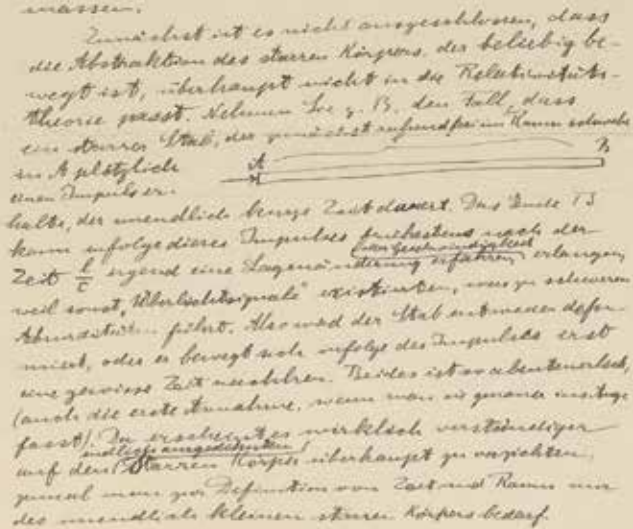 massen.
Zunächst ist es nicht ausgeschlossen, dass
die Abstraktion des starren Körpers, der beliebig be-
wegt ist, überhaupt nicht in die Relativitäts-
theorie passt. Nehmen Sie z. B. den Fall, dass
ein starrer Stab, der zunächst ruhend frei im Raum schwebe
in A plötzlich
A B
einen Impuls er-
halte, der unendlich kurze Zeit dauert. Das Ende B
kann infolge dieses Impulses frühestens nach der
Zeit l/c irgend eine Lagenänderung erfahren erlangen,
weil sonst „Überlichtsignale" existierten, was zu schweren
Absurditäten führt. Also wird der Stab entweder defor-
miert, oder er bewegt sich infolge des Impulses erst
eine gewisse Zeit nachher. Beides ist so abenteuerlich,
(auch die erste Annahme, wenn man sie genauer ins Auge
fasst). Da erscheint es wirklich verständiger
endlich ausgedehnten
auf den starren Körper überhaupt zu verzichten,
zumal man zur Definition von Zeit und Raum nur
des unendlich kleinen starren Körpers bedarf.